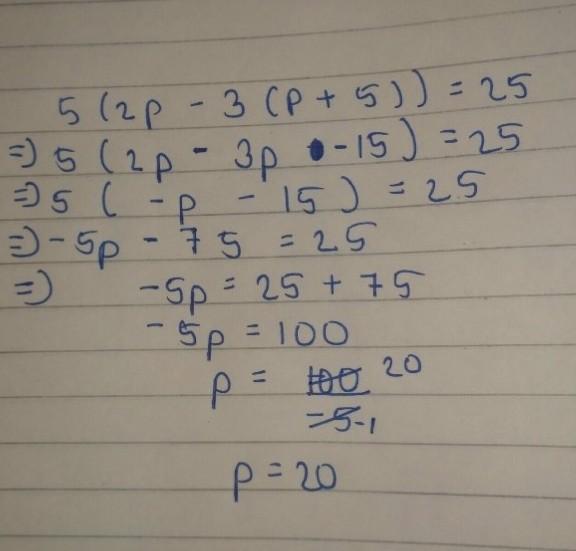 5 (2p - 3 (p + 5)) = 25
=) 5 (2p - 3p - 15) = 25
=) 5 ( -p - 15) = 25
=) -5p - 75 = 25
=) -5p = 25 + 75
-5p = 100
p = 100 20
-5 -1
p = 20